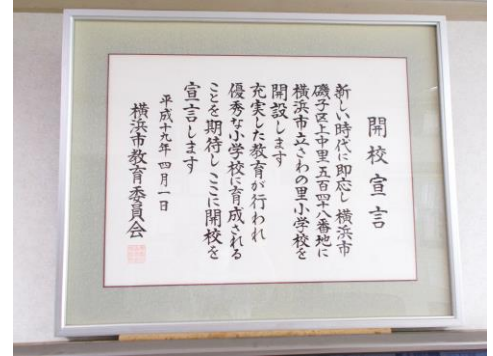 開校宣言
新しい時代に即応し 横浜市
磯子区上中里五百四十八番地に
横浜市立さわの里小学校を
開設します
充実した教育が行われ
優秀な小学校に育成される
ことを期待しここに開校を
宣言します
平成十九年四月一日
横浜市教育委員会